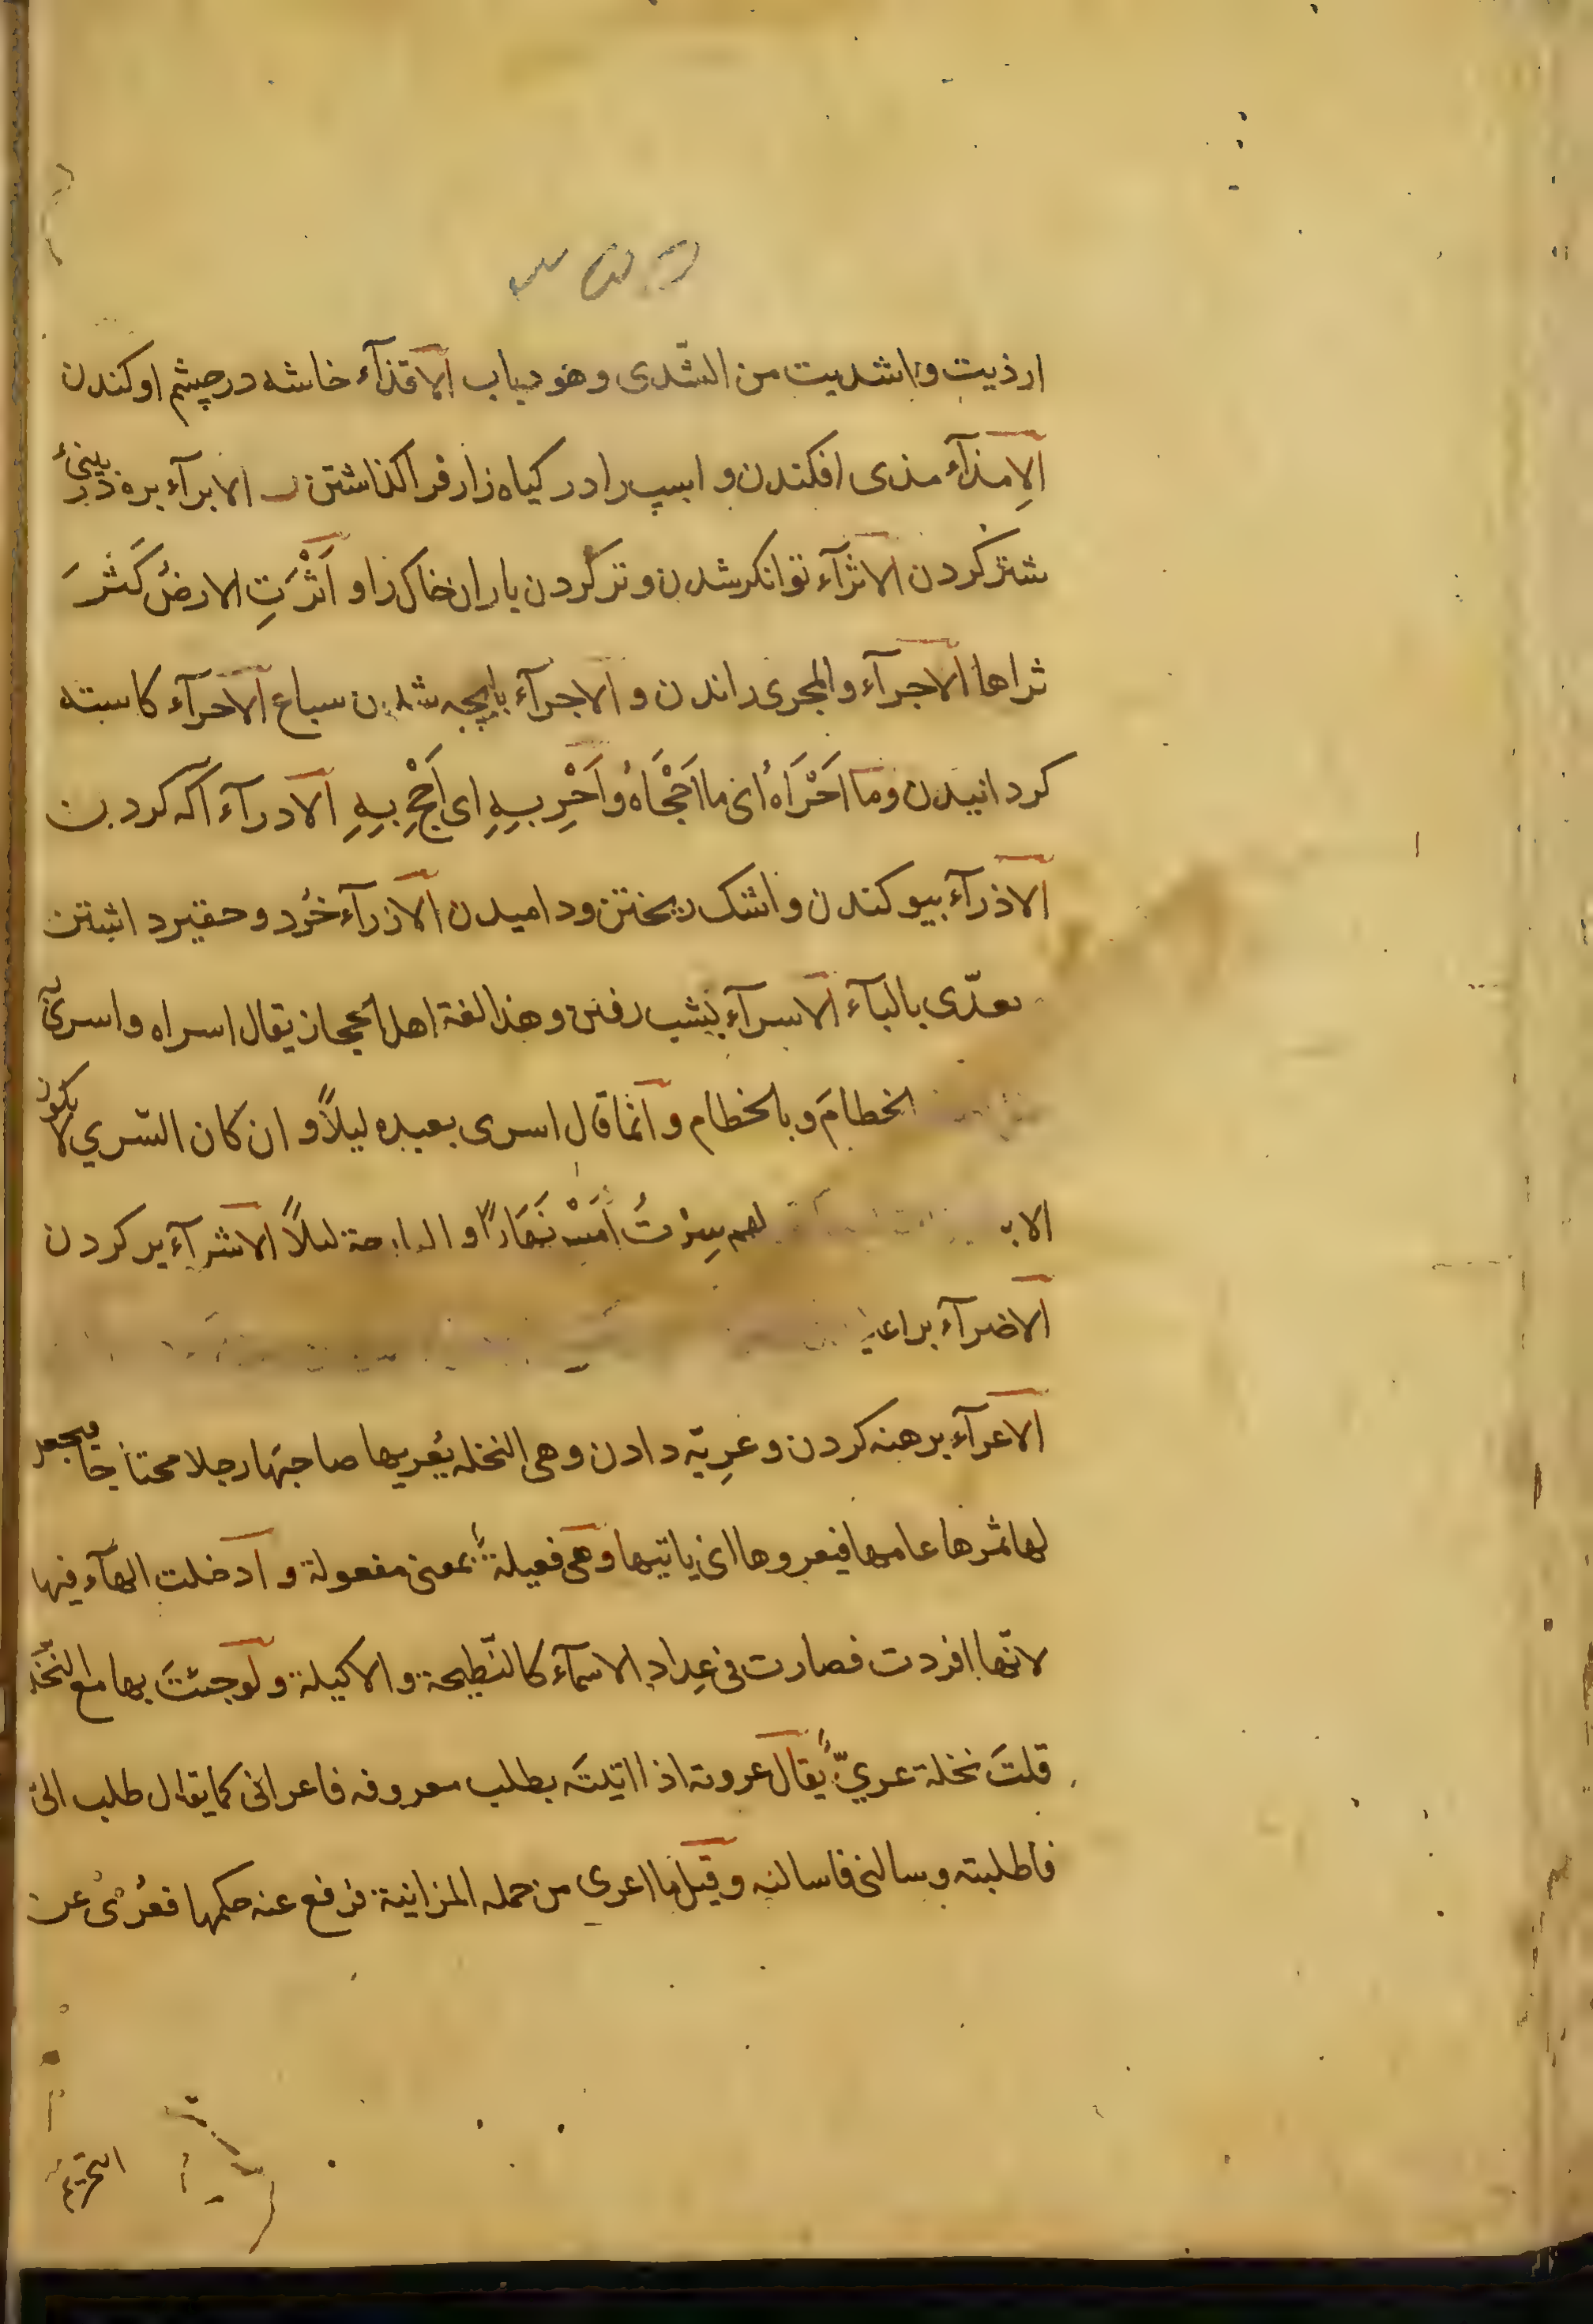 ارذيت واشديت من السّدى وهو بباب الاقذآء خاشه در چشم اوكندن
الاِمذآء مذى افكندن و اسپ را در كياه زار فرا كذاشتن الابرآء بره در بينئ
شتر كردن الاثرآء توانكر شدن و تر كردن باران خاك را و اَثْرَتِ الارضُ كَثُرَ
ثراها الاجرآء والمجرى راندن و الاجرآء بابچه شدن سباع الاحرآء كاسته
كردانيدن وما اَحْرَاهُ اى ما اَحْجَاهُ واَحْرِ بِهِ اى اَحْجِ بِهِ الادرآء اكه كردن
الاذرآء بيوكندن و اشك ريختن و داميدن الازرآء خُرد و حقير داشتن
يعدّى بالبآء الاسرآء بشب رفتن وهذا لغة اهل الحجاز يقال اسراه واسرى به
الخطامَ وبالخطام وانما قال اسرى بعبده ليلاً وان كان السّري لا يكون
سِرْتُ اَمْسِ نَهَارًا والبارحة ليلاً الاشرآء پر كردن
الاضرآء
الاعرآء برهنه كردن و عرِيّه دادن وهى النخله يُعريها صاحبَها رجلا محتاجا فيجعل
لها ثمرها عامها فيعروها اى ياتيها وهى فعيلة بمعنى مفعولة و ادخلت الهآء فيها
لانّها افردت فصارت فى عِداد الاسمآء كالنّطيحة والاكيلة ولو جئتَ بها مع النّخلة
قلتَ نخلة عريّ يقال عروته اذا اتيتَه بطلب معروفه فاعرانى كما يقال طلب الىّ
فاطلبته وسالنى فاسالته وقيل ما اعرى من جمله المزابنة فرفع عنه حكمها فعُرّى عن
التحريم